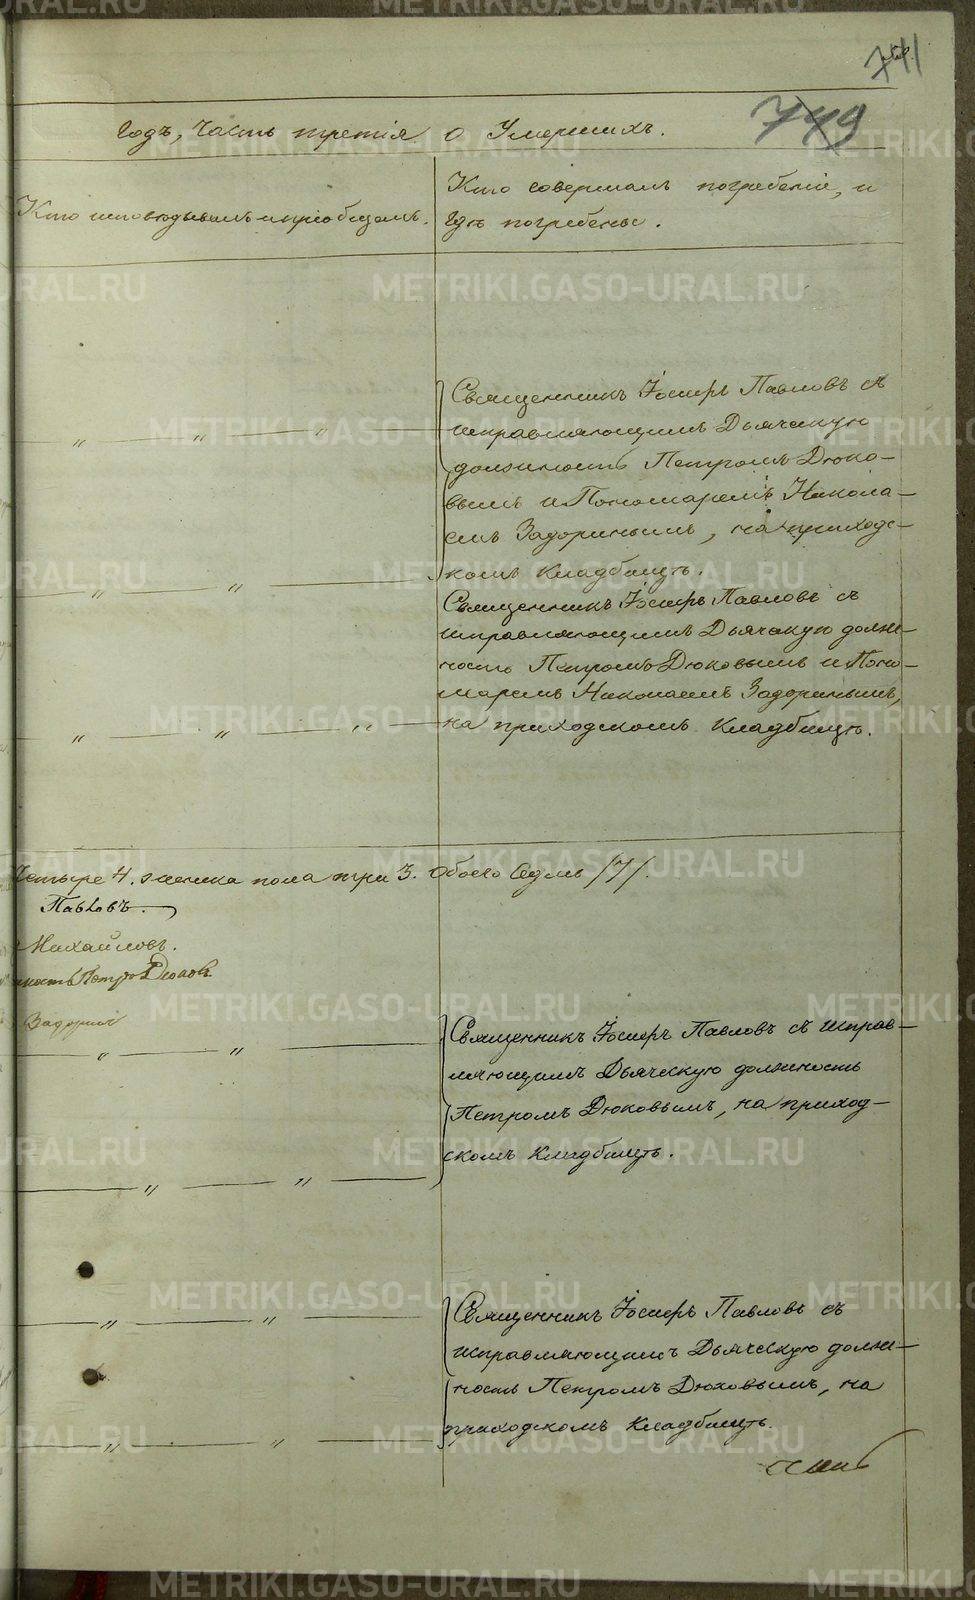 741
749
Годъ, Часть третія о Умершихъ.
Кто исповѣдывалъ и пріобщалъ.
Кто совершалъ погребеніе, и
гдѣ погребены.
Священникъ Іосифъ Павловъ съ
исправляющимъ Дьячскую
должность Петромъ Дюко-
вымъ и Пономаремъ Никола-
емъ Задоринымъ, на приходс-
комъ кладбищѣ.
Священникъ Іосифъ Павловъ съ
исправляющимъ Дьячскую долж-
ность Петромъ Дюковымъ и Поно-
маремъ Николаемъ Задоринымъ,
на приходскомъ Кладбищѣ.
Четыре 4. женска пола три 3. Обоего Седмь /7/.
Павловъ.
Михайловъ.
ность Петръ Дюковъ
Задоринъ
Священникъ Іосифъ Павловъ съ исправ-
ляющимъ Дьяческую должность
Петромъ Дюковымъ, на приход-
скомъ Кладбищѣ.
Священникъ Іосифъ Павловъ съ
исправляющимъ Дьяческую долж-
ность Петромъ Дюковымъ, на
приходскомъ Кладбищѣ.
METRIKI.GASO-URAL.RU